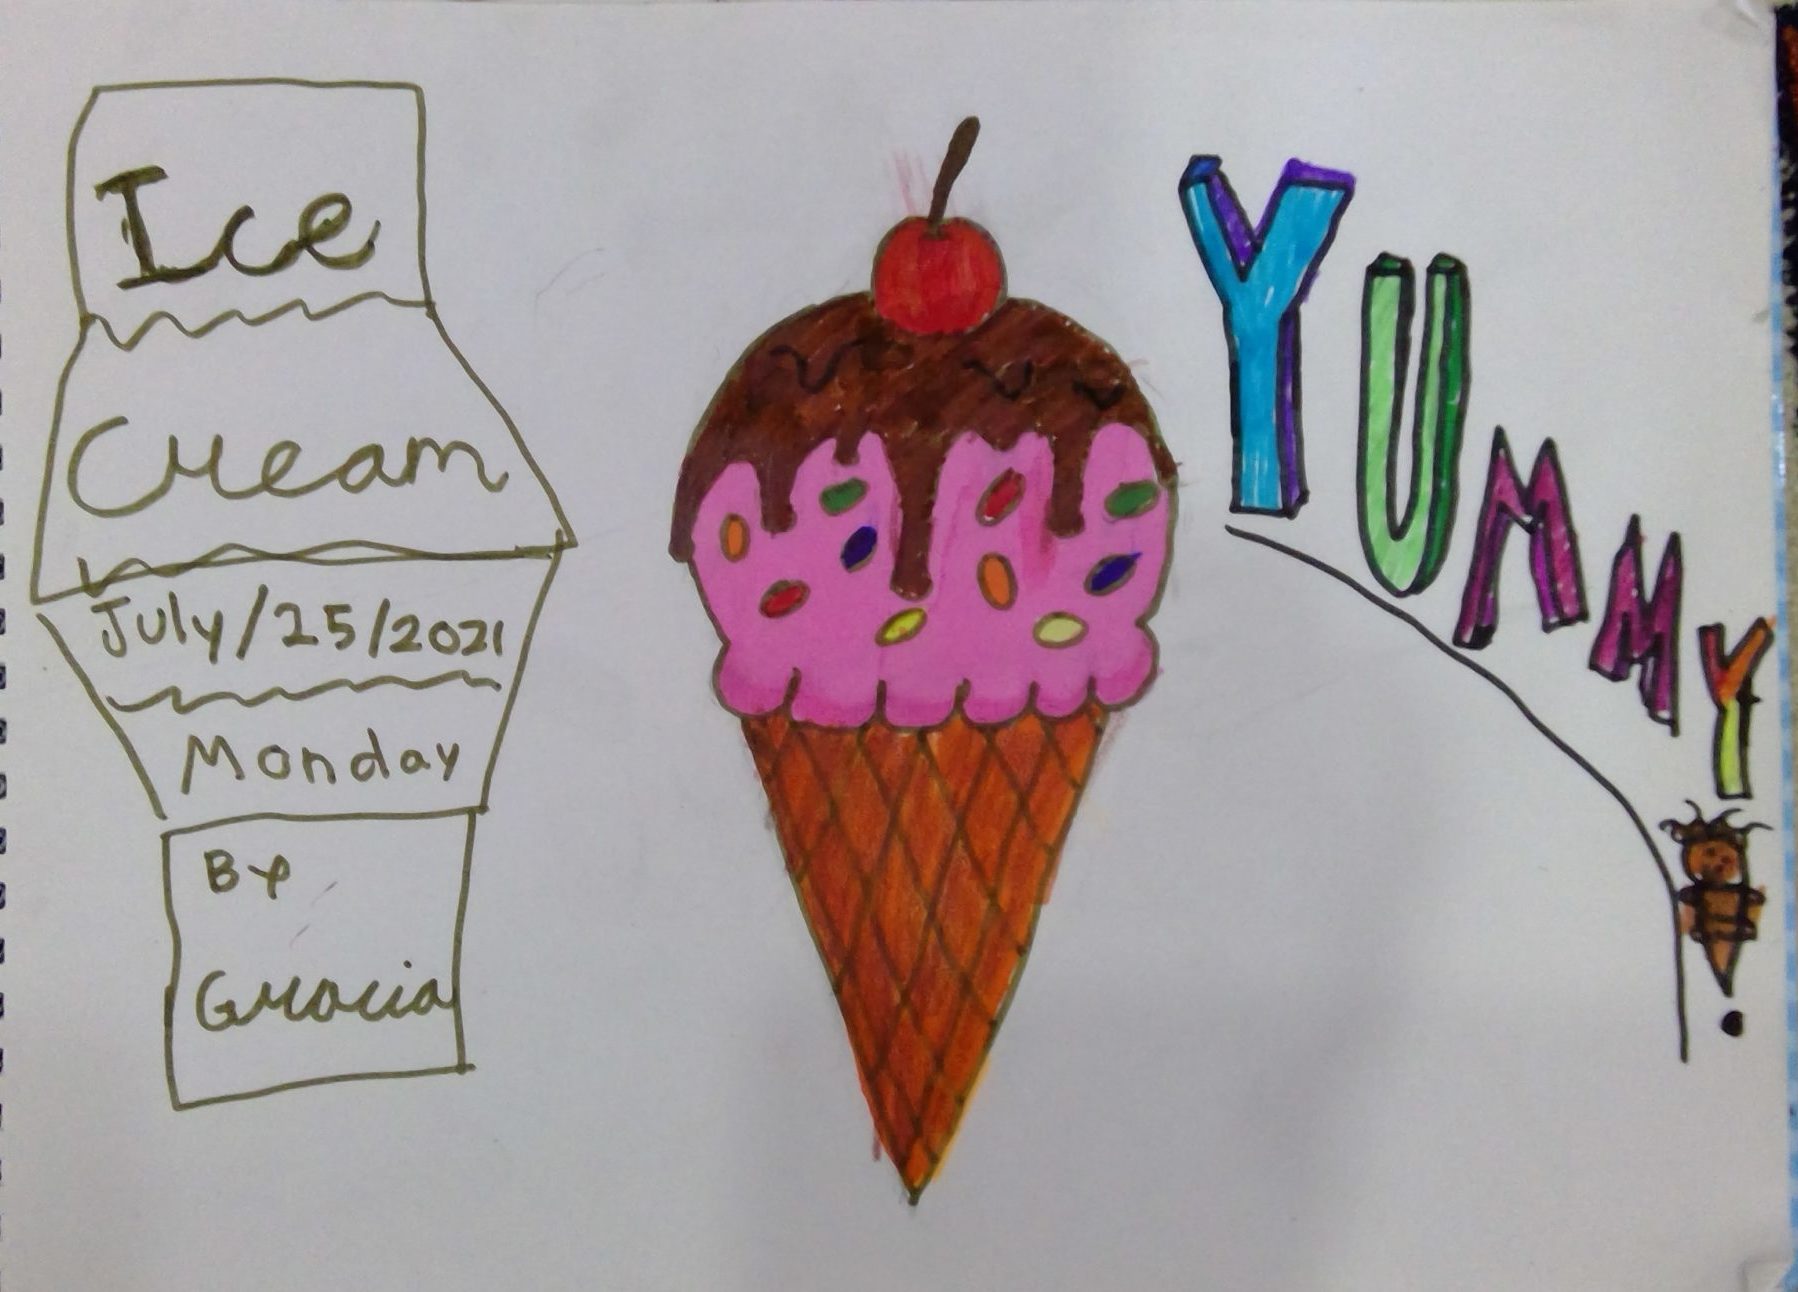 Ice
Cream
July/25/2021
Monday
By
Gracia
YUMMY